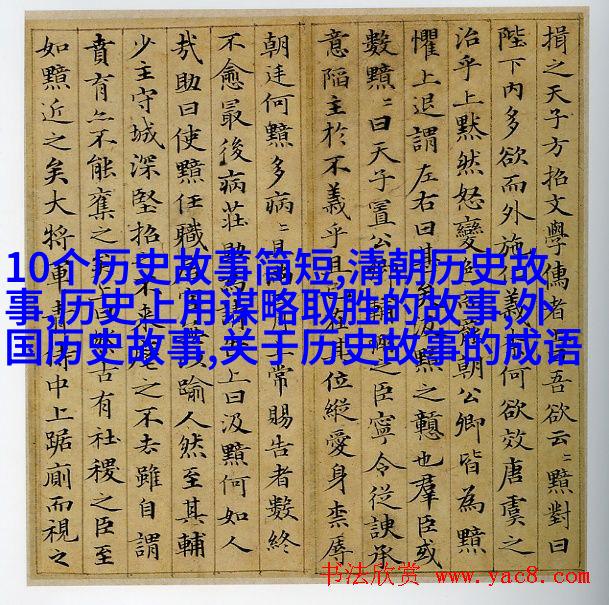 揖之天子方招文學儒者曰吾欲云〻黯對曰
陛下內多欲而外施仁義何欲效唐虞之
治乎上默然怒變色而罷朝公卿皆為黯
懼上退謂左右曰甚矣黯之戇也羣臣或
數黯〻曰天子置公卿輔弼之臣寧令從諛承
意陷主於不義乎且在其位縱愛身柰辱
朝廷何黯多病〻且滿月上常賜告者數終
不愈最後病莊助為請上曰汲黯何如人
哉助曰使黯任職居官踰人然至其輔
少主守城深堅招不來麾之不去雖自謂
賁育亦不能奪之矣上曰古有社稷之臣至
如黯近之矣大將軍青侍中上踞廁而視之
10个历史故事简短,清朝历史故
事,历史上用谋略取胜的故事,外
国历史故事,关于历史故事的成语
书法欣赏 www.yac8.com